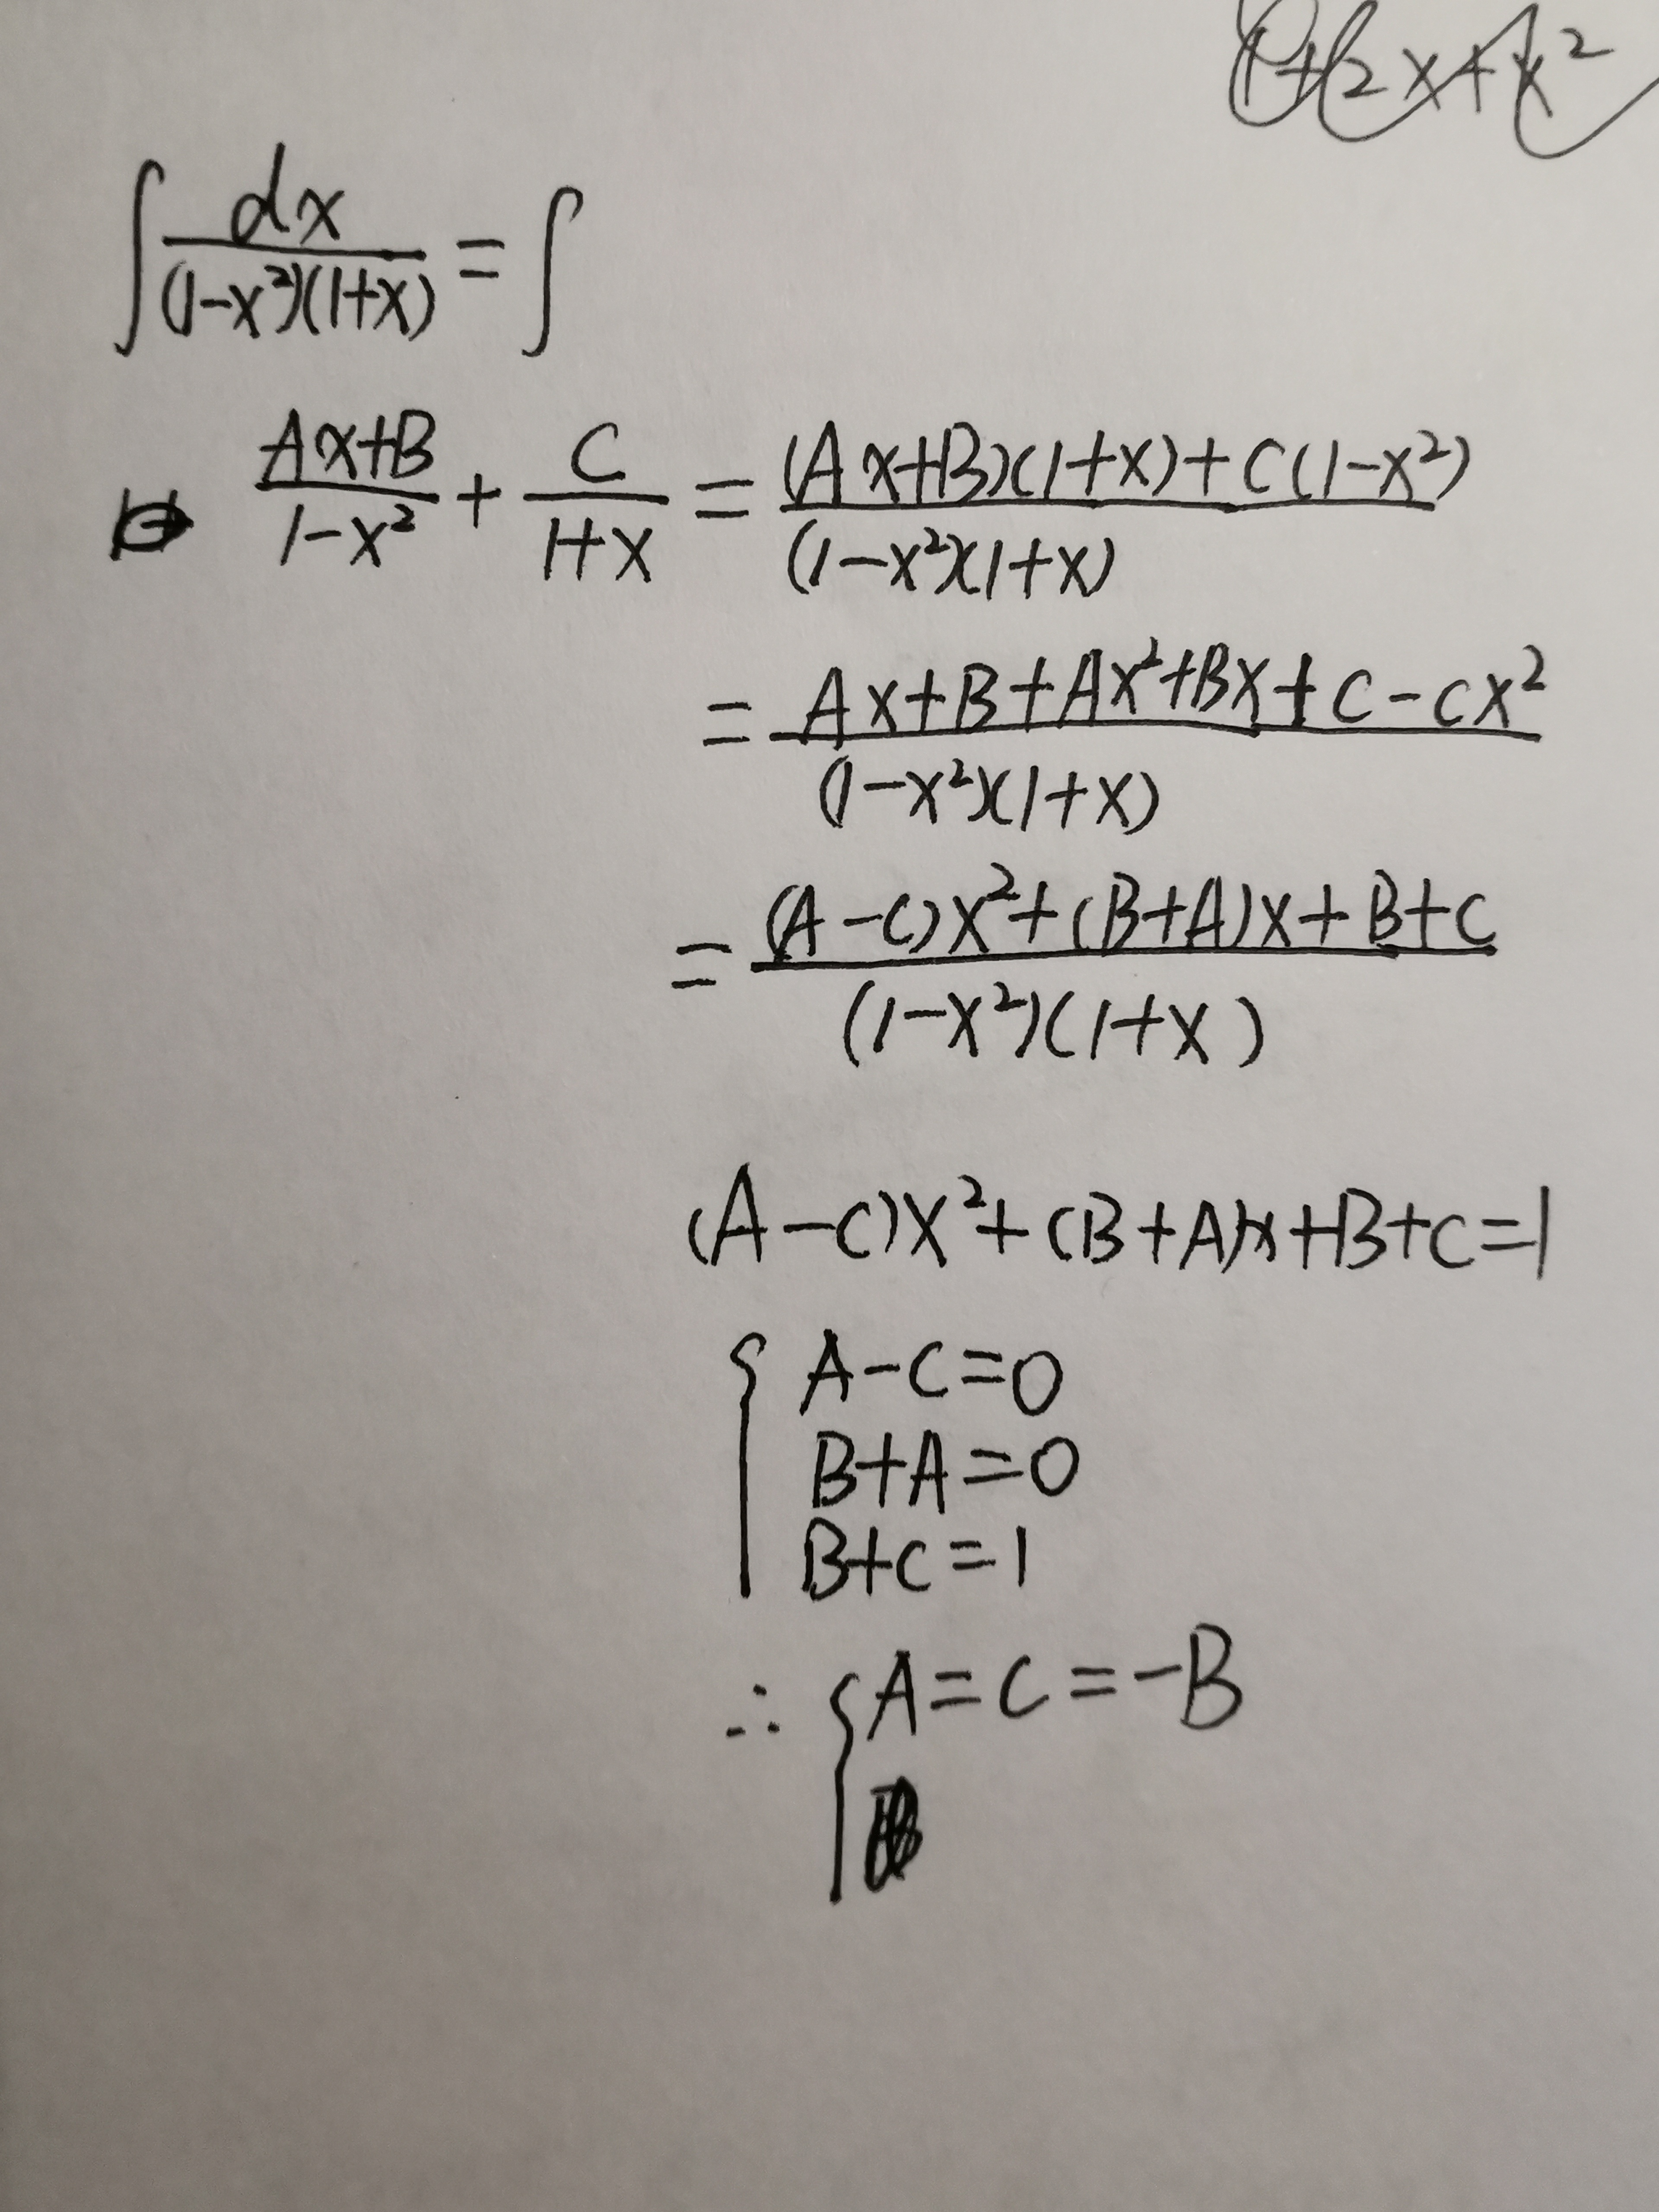 1+2x+x²
∫ dx/((1-x²)(1+x)) = ∫
(Ax+B)/(1-x²) + C/(1+x) = ((Ax+B)(1+x)+C(1-x²))/((1-x²)(1+x))
= (Ax+B+Ax²+Bx+C-Cx²)/((1-x²)(1+x))
= ((A-C)x²+(B+A)x+B+C)/((1-x²)(1+x))
(A-C)x²+(B+A)x+B+C=1
{ A-C=0
B+A=0
B+C=1
∴ { A=C=-B